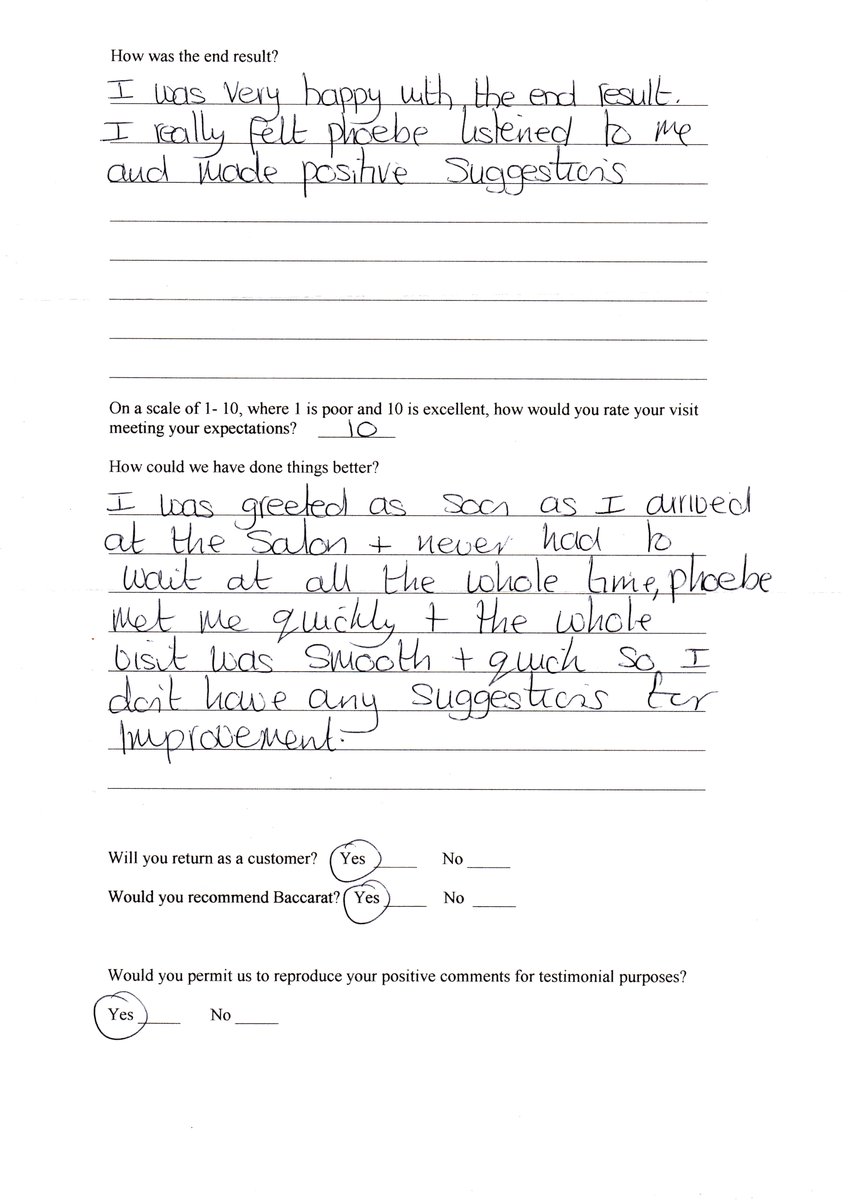 How was the end result?
I was very happy with the end result.
I really felt phoebe listened to me
and made positive suggestions
On a scale of 1- 10, where 1 is poor and 10 is excellent, how would you rate your visit
meeting your expectations? 10
How could we have done things better?
I was greeted as soon as I arrived
at the Salon + never had to
wait at all the whole time, phoebe
met me quickly + the whole
visit was smooth + quick so I
don't have any suggestions for
improvement.
Will you return as a customer? Yes ____ No ____
Would you recommend Baccarat? Yes ____ No ____
Would you permit us to reproduce your positive comments for testimonial purposes?
Yes ____ No ____